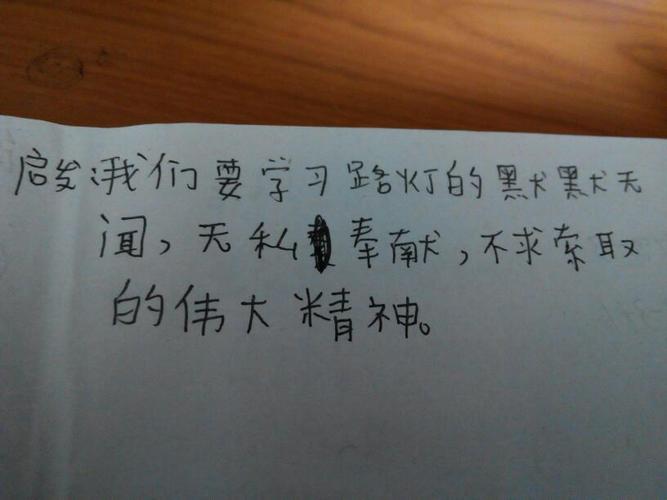 启发:我们要学习路灯的默默无
闻,无私奉献,不求索取
的伟大精神。